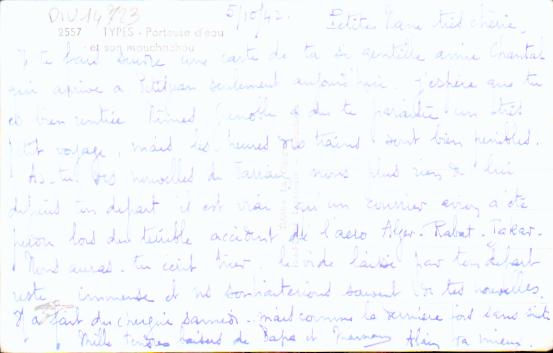 DIV 14723
5/10/42. Petite Nane très chérie,
2557 TYPES - Porteuse d'eau
et son mouchachou
Je te fais suivre une carte de ta si gentille amie Chantal
qui arrive à seulement aujourd'hui. j'espère que tu
es bien rentrée Nîmes Grenoble a du te paraître un très
petit voyage, mais les heures des trains sont bien penibles.
As-tu des nouvelles de nous plus rien de lui
depuis ton depart il est vrai qu'un courrier avion a été
perdu lors du terrible accident de l'aero Alger-Rabat-Dakar.
Nous auras-tu écrit hier, le vide laissé par ton depart
reste immense et ns souhaiterions souvent de tes nouvelles.
Il a fait du chergui samedi. mais comme la dernière fois sans suite
Mille tendres baisers de Papa et Maman Alain va mieux.